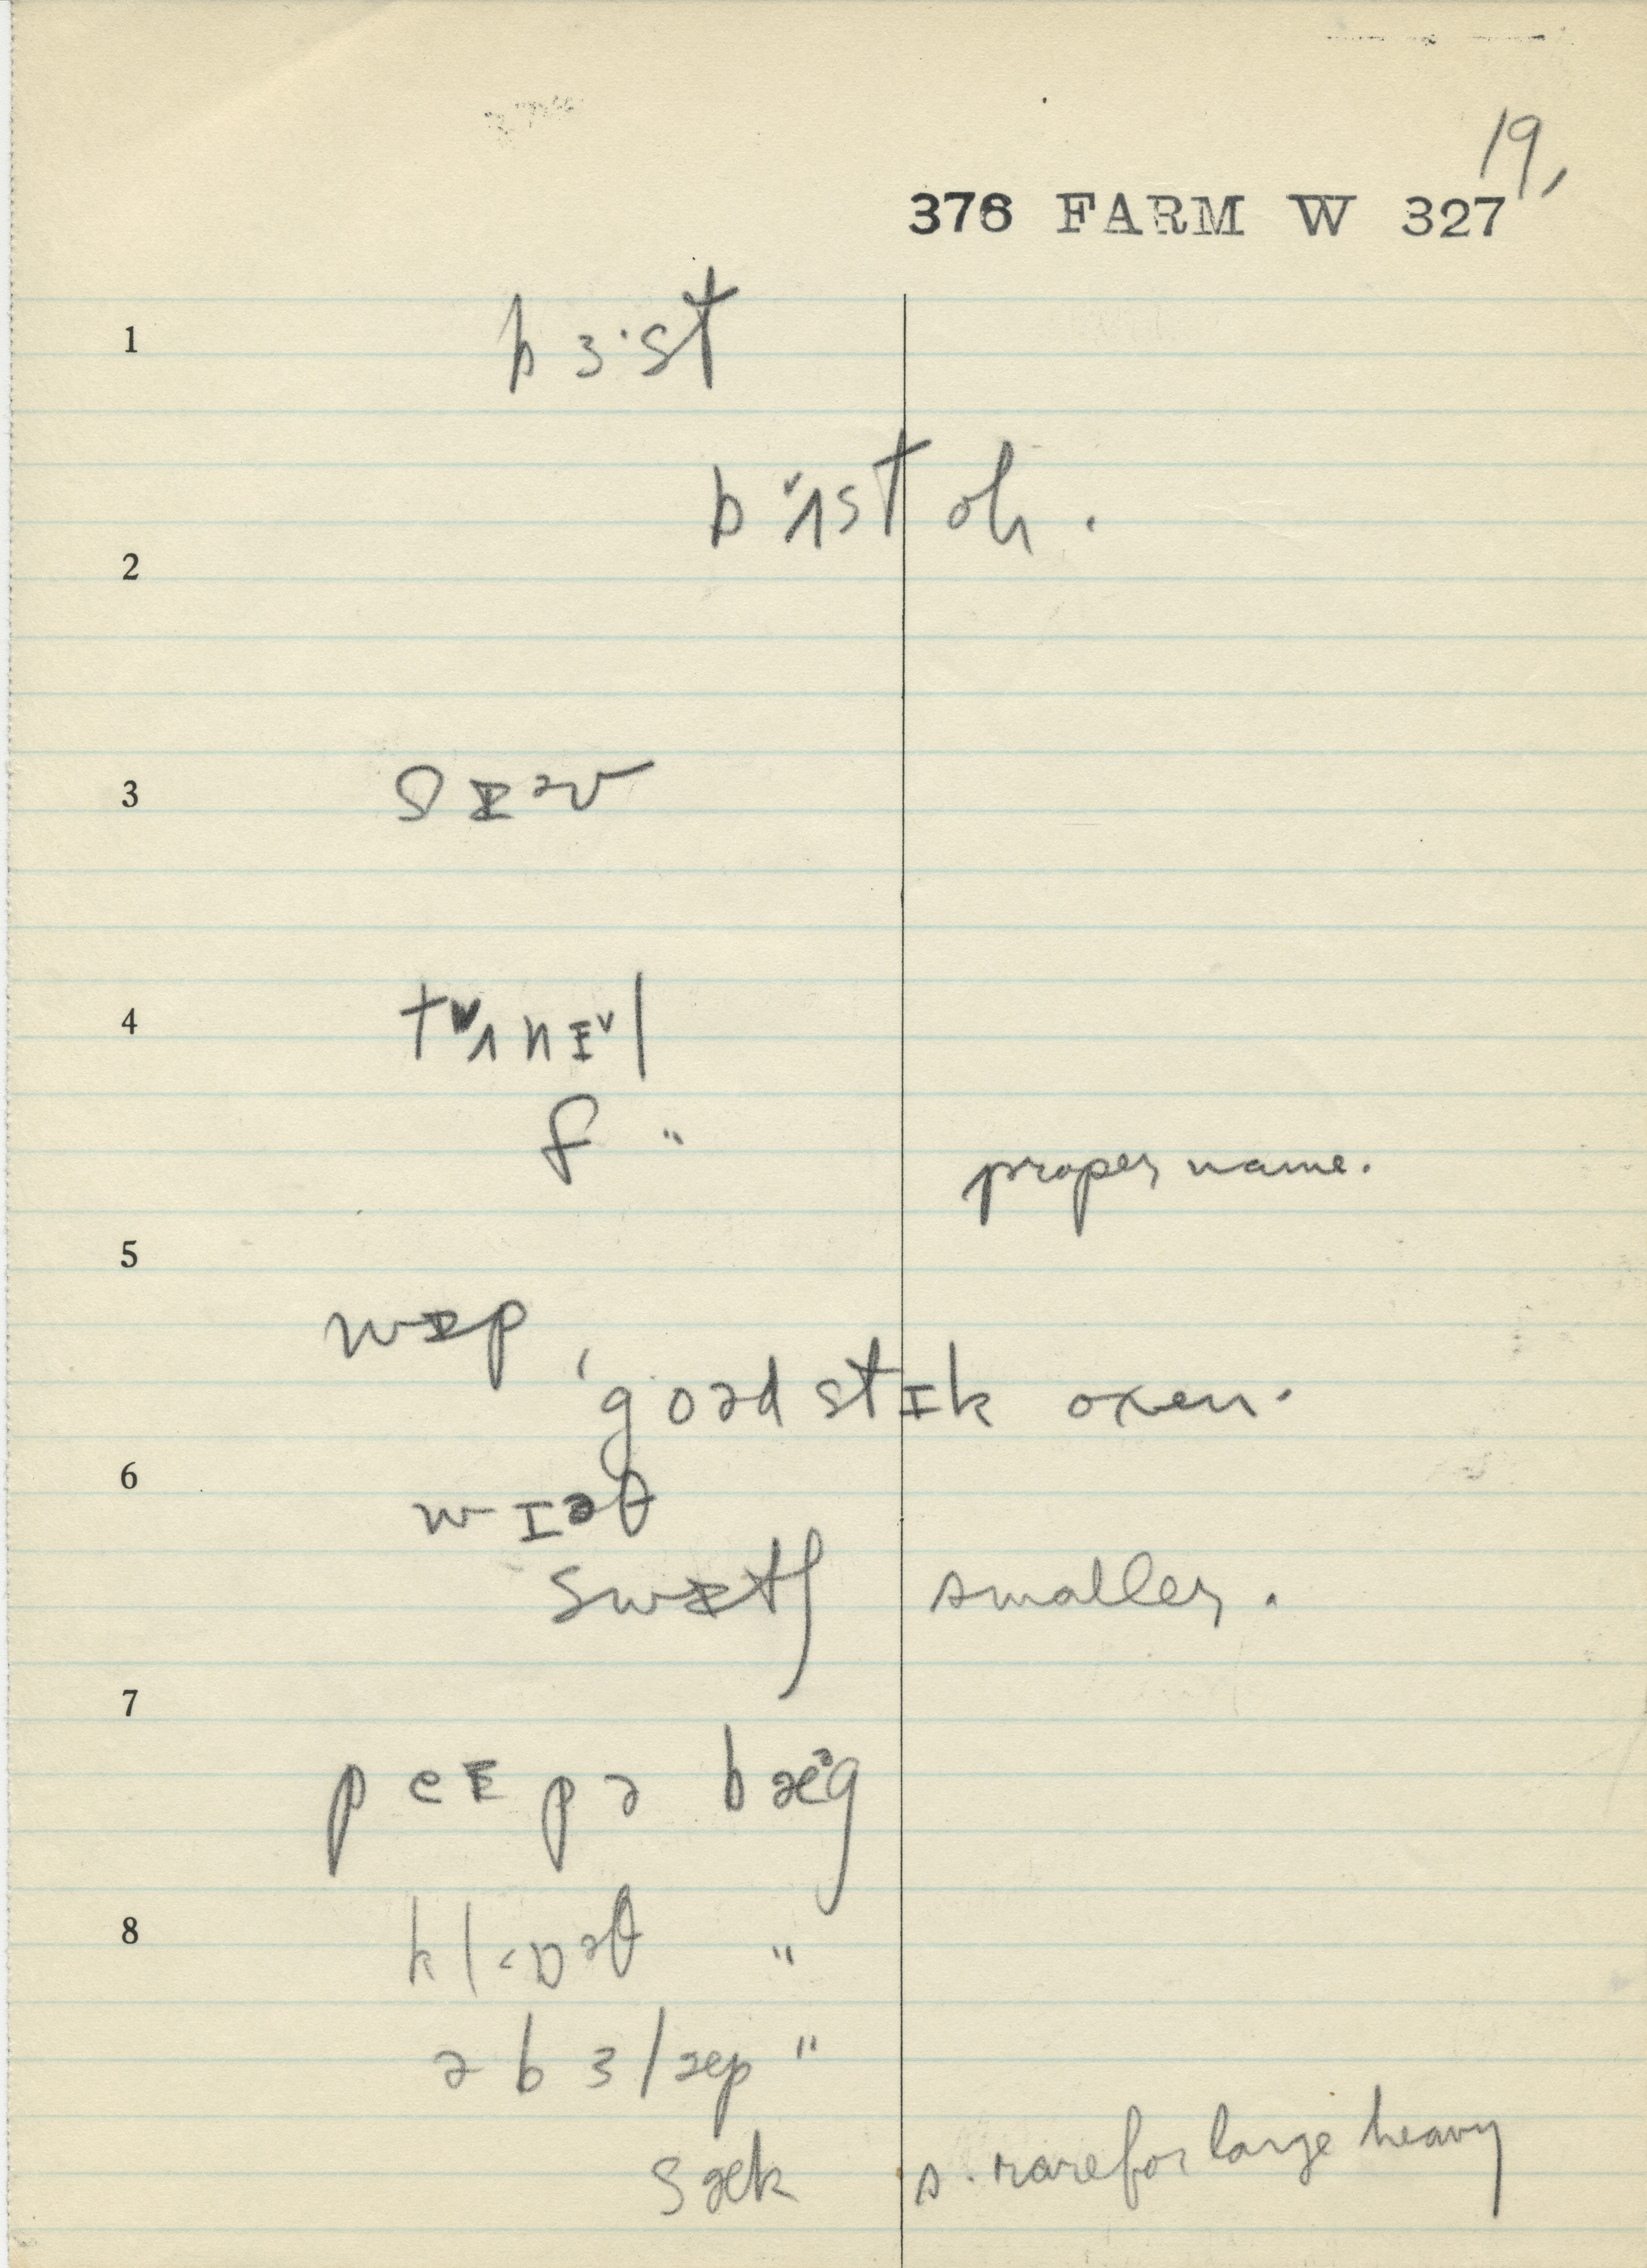 19,
376 FARM W 327
1
bɜ·st
bʌ˅st oh.
2
3
4
tʌ˅nɪ˅l
f "
proper name.
5
goəd stɪk oxen.
6
wɪəθ
smaller.
7
peɪpə bæᵊg
8
klɒəθ "
ə bɜlæp "
sæk s. rare for large heavy